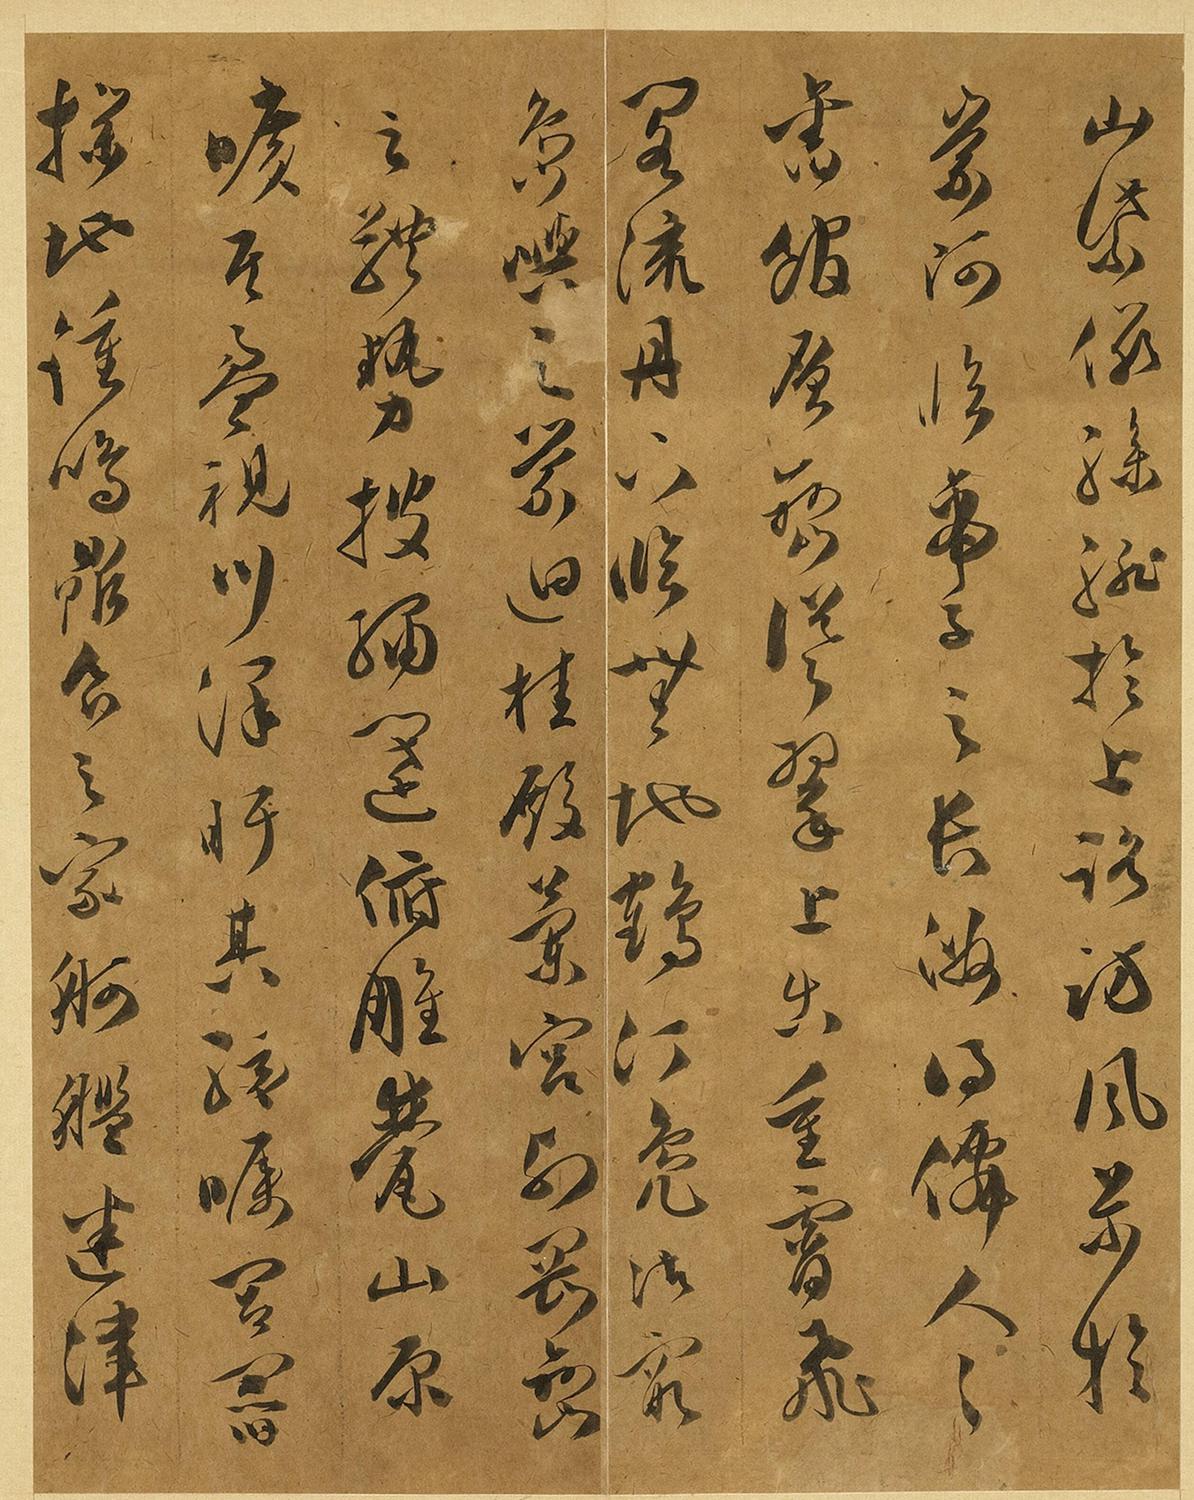 山紫儼驂騑於上路訪風景於
崇阿臨帝子之長得僊人之
舊館層巒聳翠上出重霄飛
閣流丹下臨無地鶴汀鳧渚窮
島嶼之縈迴桂殿蘭宮列岡巒
之體勢披繡闥俯雕甍山原
曠其盈視川澤盱其駭矚閭閻
撲地鐘鳴鼎食之家舸艦迷津